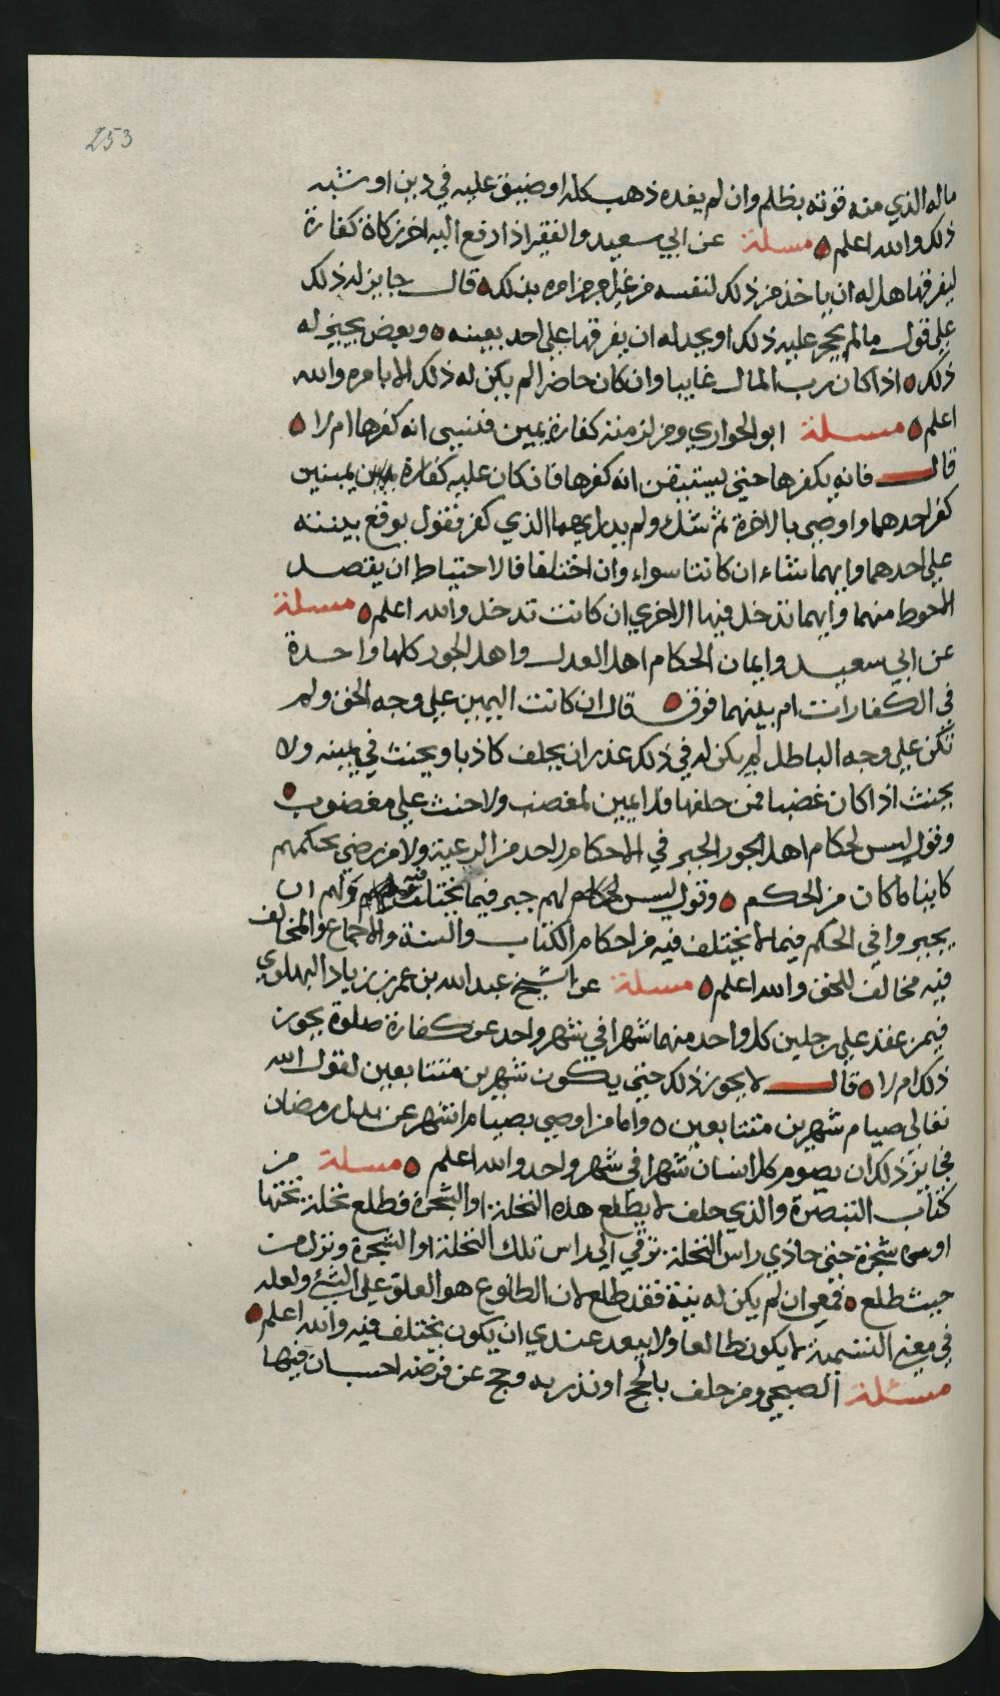 253
ماله الذي منه قوته بظلم وان لم يفده ذهب كله او ضيق عليه في دين او شبه
ذلك والله اعلم مسئلة عن ابي سعيد والفقير اذا دفع اليه اخر زكاة كفارة
ليفرقها هل له ان ياخذ من ذلك لنفسه من غير امر من امره بذلك قال جايز له ذلك
على قول ما لم يحجر عليه ذلك او يحد له ان يفرقها على احد بعينه وبعض يجيز له
ذلك اذا كان رب المال غايبا وان كان حاضرا لم يكن له ذلك الا بامره والله
اعلم مسئلة ابو الحواري ومن لزمته كفارة يمين فنسي انه كفرها ام لا
قال فانه يكفرها حتى يستيقن انه كفرها فان كان عليه كفارة يمينين
كفر احدهما واوصى بالاخرة ثم شك ولم يدر ايهما الذي كفر فنقول يوقع بيننه
على احدهما وايهما شاء ان كانتا سواء وان اختلفا فالاحتياط ان يقصد
الاحوط منهما وايهما تدخل فيها الاخرى ان كانت تدخل والله اعلم مسئلة
عن ابي سعيد وايمان الحكام اهل العدل واهل الجور كلها واحدة
في الكفارات ام بينهما فوق قال ان كانت اليمين على وجه الحق ولم
تكن على وجه الباطل لم يكن له في ذلك عذر ان يحلف كاذبا ويحنث في يمينه ولا
يحنث اذا كان غضبا فمن حلفها فلا يمين لمغصب ولا حنث على مغضوب
وقول ليس لحكام اهل الجور الجبر في الاحكام لاحد من الرعية ولا من رضي بحكمهم
كاينا ما كان من الحكم وقول ليس لهم جبر فيما يختلف فيه ولهم ان
يجبروا في الحكم فيما لا يختلف فيه من احكام الكتاب والسنة والاجماع والمخالف
فيه مخالف للحق والله اعلم مسئلة عن الشيخ عبد الله بن عمر بن زياد البهلوي
فيمن عقد على رجلين كل واحد منهما شهرا في شهر واحد عن كفارة صلوة يجوز
ذلك ام لا قال لا يجوز ذلك حتى يكون شهرين متتابعين لقول الله
تعالى صيام شهرين متتابعين واما من اوصى بصيام اشهر عن بدل رمضان
فجايز ذلك ان يصوم كل انسان شهرا في شهر واحد والله اعلم مسئلة من
كتاب التبصرة والذي حلف لا يطلع هذه النخلة او الشجرة فطلع نخلة تحتها
او شجرة حتى حاذي راس النخلة ترقي الى راس تلك النخلة او الشجرة ونزل من
حيث طلع فمعي ان لم يكن له نية فقد طلع لان الطلوع هو العلو على الشئ ولعله
في معنى التسمية لا يكون طالعا ولا يبعد عندي ان يكون يختلف فيه والله اعلم
مسئلة الصبحي ومن حلف بالحج او نذر به وحج عن فرضه احسبان فيها